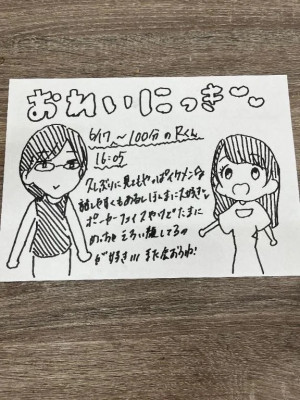 おれいにっき♡♡
6/17 〜100分のRくん
16:05
久しぶりに見てもやっぱイケメンな
話しやすくもあるしほんまに大好き♡
ポーカーフェイスやけどたまに
めっちゃえろい顔してるの
が好き!!! また会おうね!